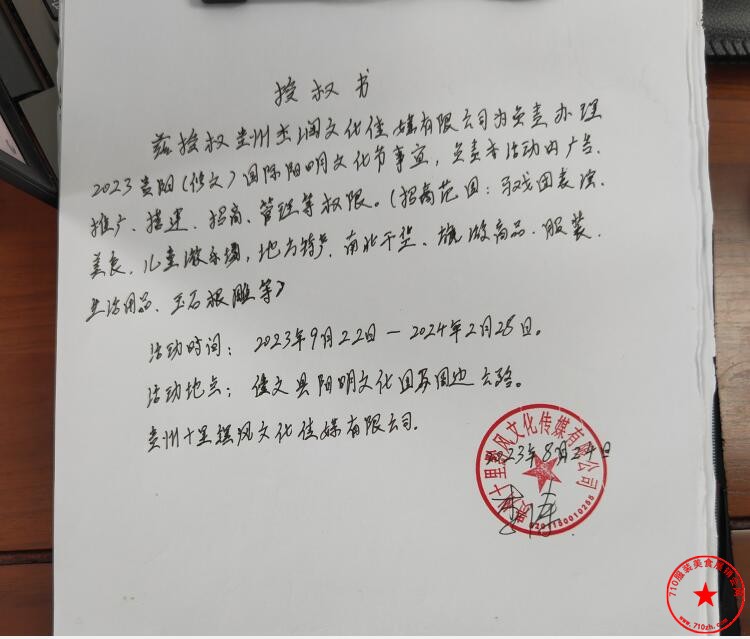 授权书
兹授权贵州杰润文化传媒有限公司为负责办理
2023贵阳(修文)国际阳明文化节事宜，负责本活动内广告、
推广、搭建、招商、管理等权限。(招商范围：马戏团表演、
美食、儿童游乐场，地方特产，南北干货、旅游商品、服装、
生活用品、玉石根雕等)
活动时间：2023年9月22日—2024年2月28日。
活动地点：修文县阳明文化园及周边公路。
贵州十里 风文化传媒有限公司.
2023年8月24日
十里 风文化传媒有限公司
710服装美食展销会网
www.710zh.com